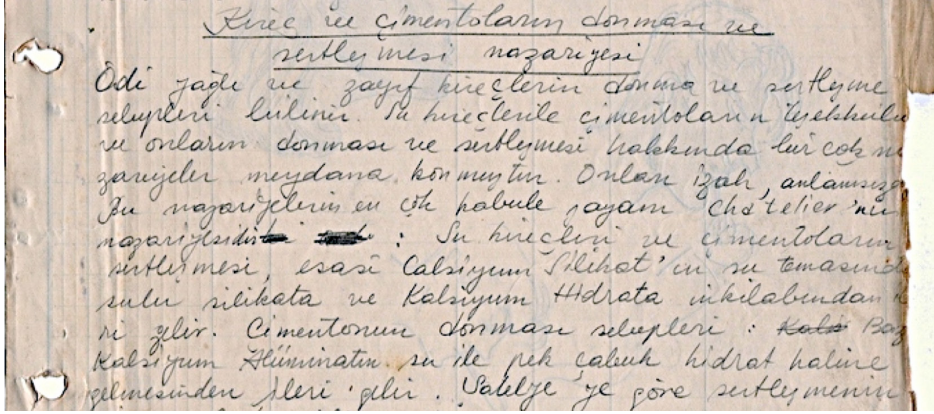 Kireç ve çimentoların donması ve
sertleşmesi nazariyesi
Adi yağlı ve zayıf kireçlerin donma ve sertleşme
sebepleri bilinir. Su kireçlerile çimentoların teşekkülü
ve onların donması ve sertleşmesi hakkında bir çok na
zariyeler meydana konmuştur. Onları izah,
Bu nazariyelerin en çok kabule şayanı Chatelier'nin
nazariyesidir : Su kireçleri ve çimentoların
sertleşmesi, esasi Calsiyum Silikat'ın su temasında
sulu silikata ve Kalsiyum Hidrata inkilabından
ri gelir. Çimentonun donması sebepleri : Baz
Kalsiyum Alüminatın su ile pek çabuk hidrat haline
gelmesinden ileri gelir. ye göre sertleşmenin